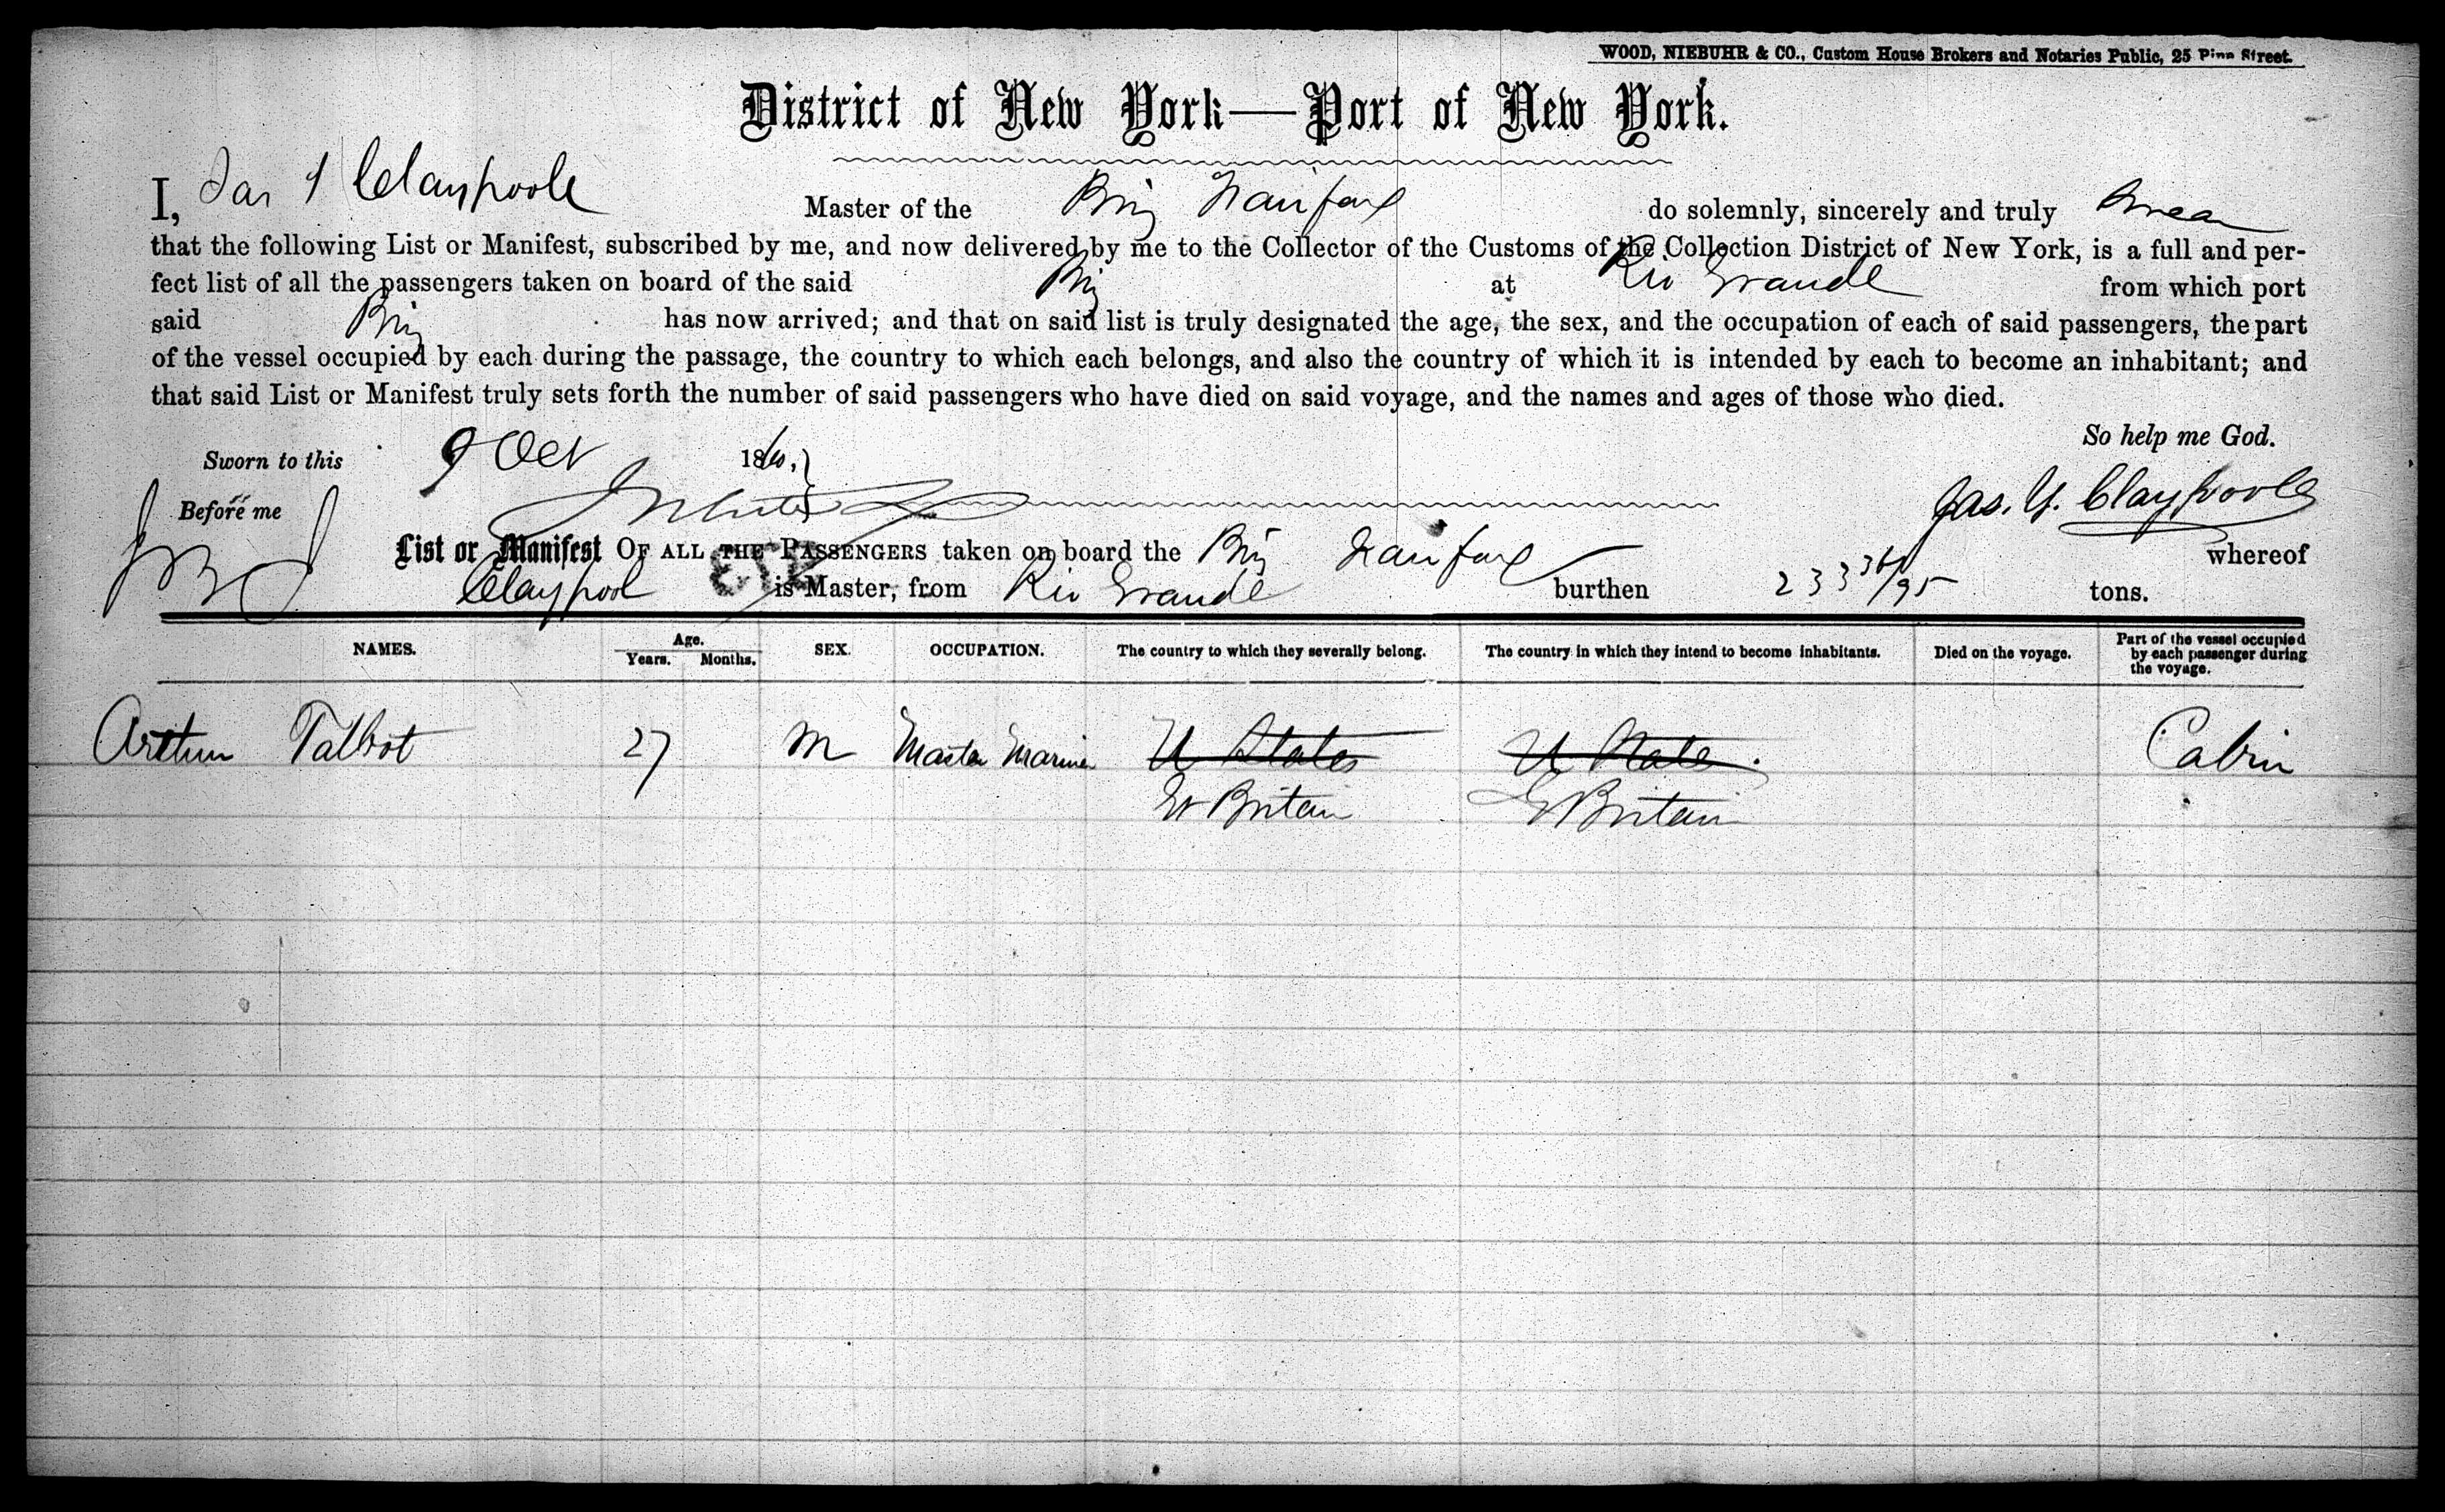 WOOD, NIEBUHR & CO., Custom House Brokers and Notaries Public, 25 Pine Street.
District of New York—Port of New York.
I, Jas Y Claypoole Master of the Brig Fairfax do solemnly, sincerely and truly swear
that the following List or Manifest, subscribed by me, and now delivered by me to the Collector of the Customs of the Collection District of New York, is a full and per-
fect list of all the passengers taken on board of the said Brig at Rio Grande from which port
said Brig has now arrived; and that on said list is truly designated the age, the sex, and the occupation of each of said passengers, the part
of the vessel occupied by each during the passage, the country to which each belongs, and also the country of which it is intended by each to become an inhabitant; and
that said List or Manifest truly sets forth the number of said passengers who have died on said voyage, and the names and ages of those who died.
So help me God.
Sworn to this 9 Oct 1860,
Before me
Jas. Y. Claypoole
List or Manifest OF ALL THE PASSENGERS taken on board the Brig Fairfax whereof
Claypool is Master, from Rio Grande burthen 233 36/95 tons.
NAMES. Age. Years. Months. SEX. OCCUPATION. The country to which they severally belong. The country in which they intend to become inhabitants. Died on the voyage. Part of the vessel occupied by each passenger during the voyage.
Arthur Talbot 27 M Master Mariner U States U State. Cabin
Gt Britain G Britain